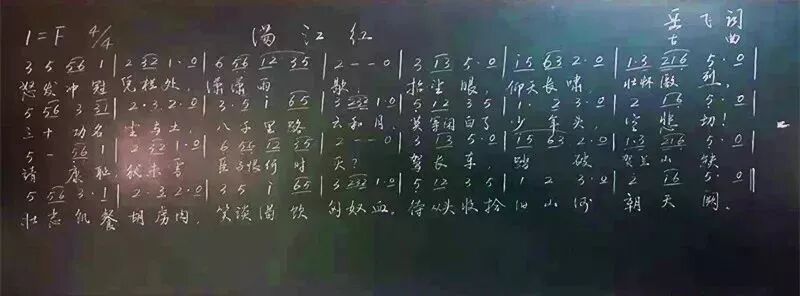 1=F 4/4 满江红 岳飞词
古曲
3 5 56 1 | 2 32 1·0 | 6 56 12 35 | 2 - - 0 | 3 13 5·0 | i5 63 2·0 | 1·3 216 5·0
怒发冲冠 凭栏处, 潇潇雨 歇, 抬望眼, 仰天长啸, 壮怀激 烈,
5 56 3 31 | 2·3 2·0 | 3 5 i 65 | 3 232 1·0 | 5 12 3 5 | 1· 2 3·0 | 2 16 5·0
三十功名 尘与土, 八千里路 云和月, 莫等闲白了 少年头, 空悲 切!
5 - 56 1 | 2 32 1·0 | 6 56 12 35 | 2 - - 0 | 3 13 5·0 | i5 63 2·0 | 1·3 216 5·0
靖 康耻, 犹未雪 臣子恨何时 灭? 驾长车, 踏 破 贺兰山 缺
5 56 3·1 | 2·3 2·0 | 3 5 i 65 | 3 232 1·0 | 5 12 3 5 | 1 2 3·0 | 2 16 5·0
壮志饥餐 胡虏肉, 笑谈渴饮 匈奴血, 待从头收拾 旧山河 朝天 阙.